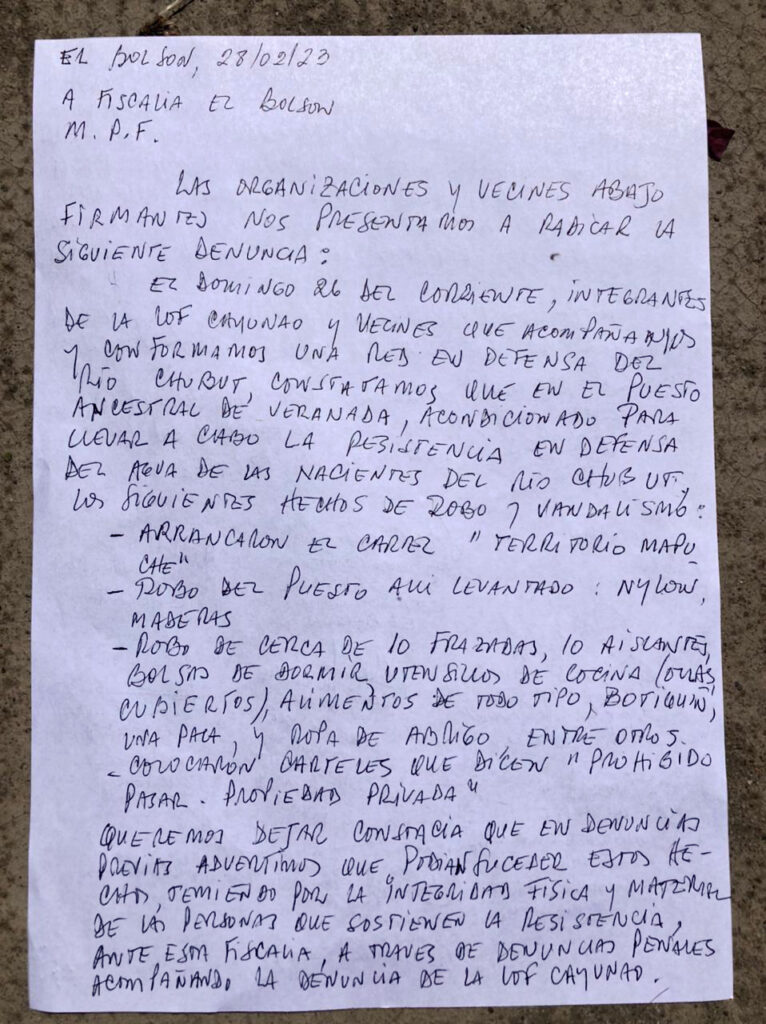 EL BOLSON, 28/02/23
A FISCALIA EL BOLSON
M. P. F.
LAS ORGANIZACIONES Y VECINES ABAJO
FIRMANTES NOS PRESENTAMOS A RADICAR LA
SIGUIENTE DENUNCIA:
EL DOMINGO 26 DEL CORRIENTE, INTEGRANTES
DE LA LOF CAYUNAO Y VECINES QUE ACOMPAÑAMOS
Y CONFORMAMOS UNA RED EN DEFENSA DEL
RÍO CHUBUT, CONSTATAMOS QUE EN EL PUESTO
ANCESTRAL DE VERANADA, ACONDICIONADO PARA
LLEVAR A CABO LA RESISTENCIA EN DEFENSA
DEL AGUA DE LAS NACIENTES DEL RÍO CHUBUT,
LOS SIGUIENTES HECHOS DE ROBO Y VANDALISMO:
- ARRANCARON EL CARTEL "TERRITORIO MAPU
CHE"
- ROBO DEL PUESTO ALLI LEVANTADO: NYLON,
MADERAS
- ROBO DE CERCA DE 10 FRAZADAS, 10 AISLANTES,
BOLSAS DE DORMIR, UTENSILLOS DE COCINA (OLLAS,
CUBIERTOS), ALIMENTOS DE TODO TIPO, BOTIQUIN,
UNA PALA, Y ROPA DE ABRIGO, ENTRE OTROS.
- COLOCARON CARTELES QUE DICEN "PROHIBIDO
PASAR. PROPIEDAD PRIVADA"
QUEREMOS DEJAR CONSTACIA QUE EN DENUNCIAS
PREVIAS ADVERTIMOS QUE PODIAN SUCEDER ESTOS HE-
CHOS, TEMIENDO POR LA INTEGRIDAD FÍSICA Y MATERIAL
DE LAS PERSONAS QUE SOSTIENEN LA RESISTENCIA,
ANTE ESTA FISCALIA, A TRAVES DE DENUNCIAS PENALES
ACOMPAÑANDO LA DENUNCIA DE LA LOF CAYUNAO.